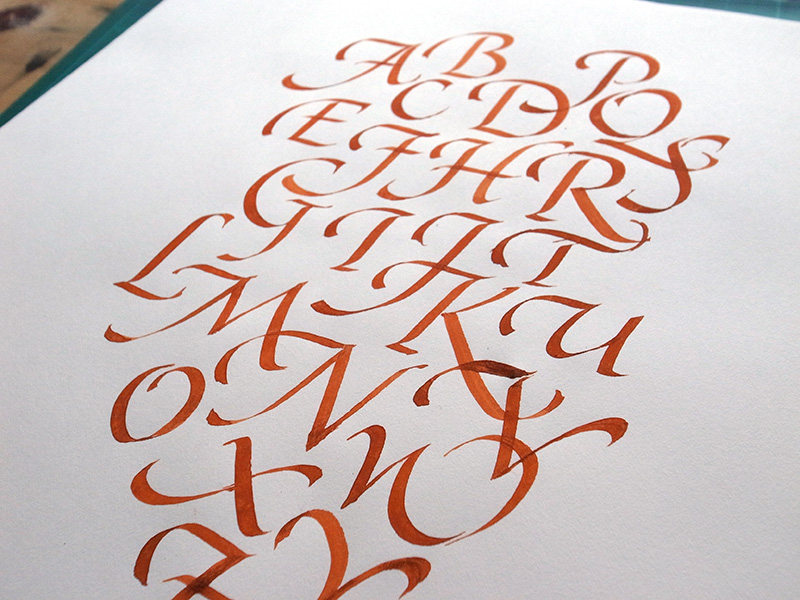 A B P
C D Q S
E F H R
G I J T
L M K U
O N
X
Z Y